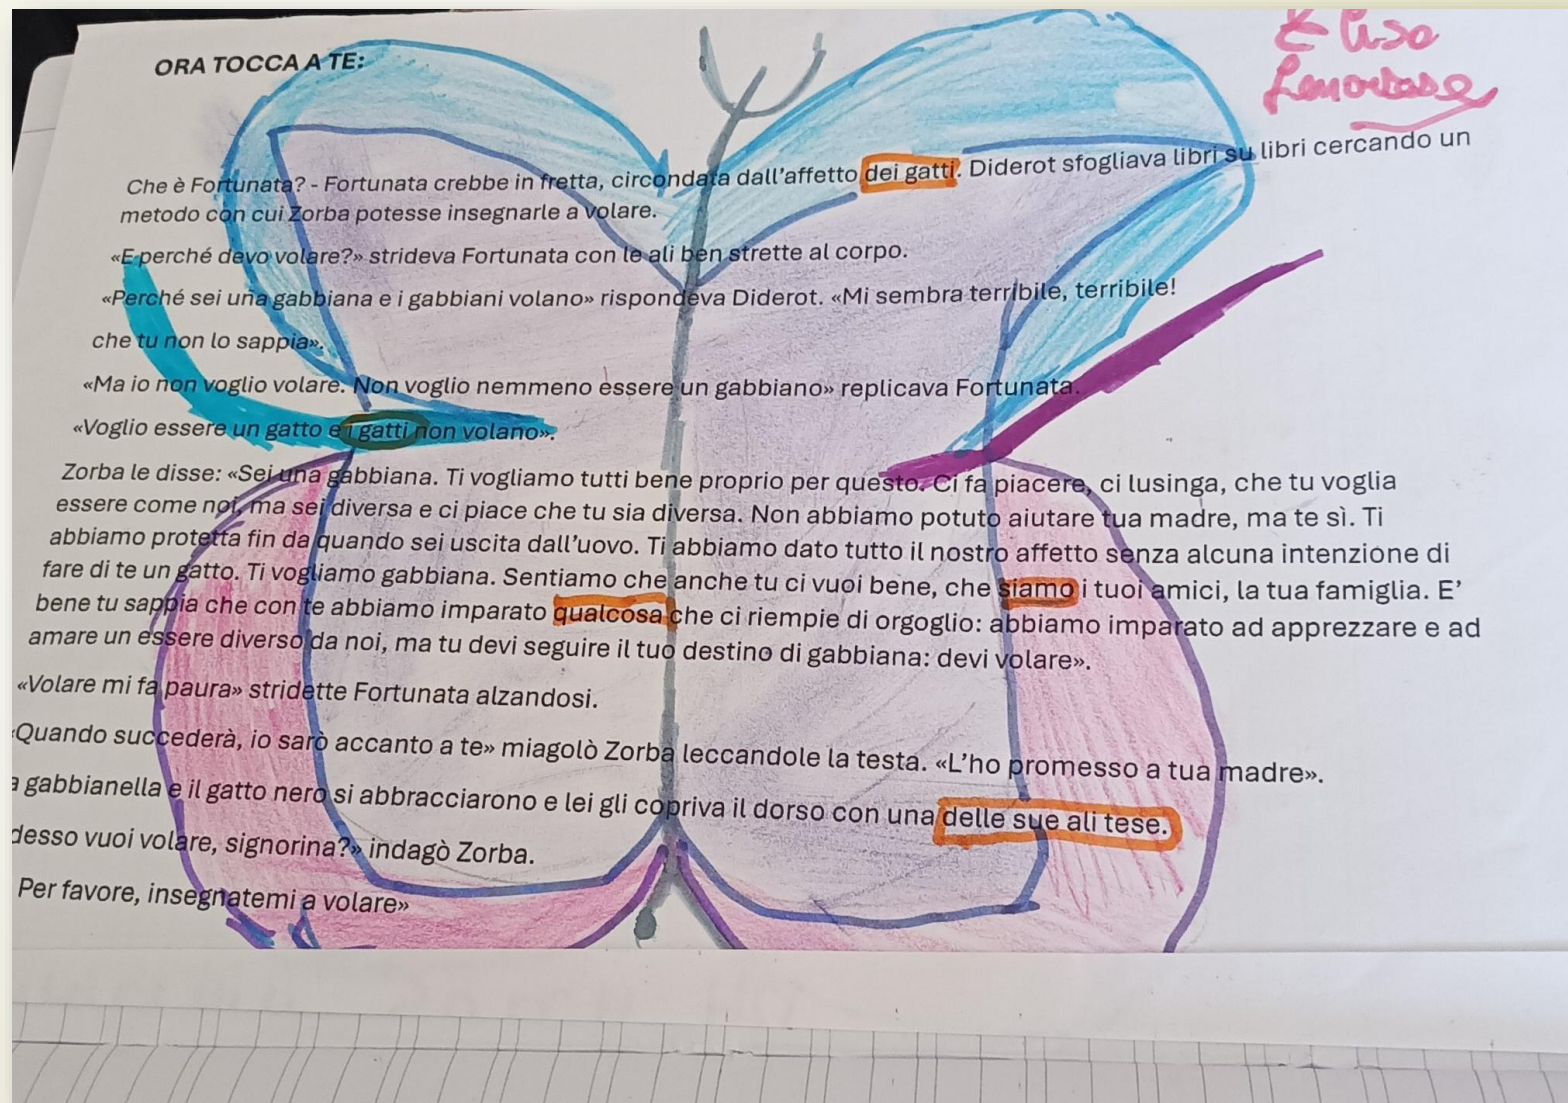 ORA TOCCA A TE:
Che è Fortunata? - Fortunata crebbe in fretta, circondata dall'affetto dei gatti. Diderot sfogliava libri su libri cercando un
metodo con cui Zorba potesse insegnarle a volare.
«E perché devo volare?» strideva Fortunata con le ali ben strette al corpo.
«Perché sei una gabbiana e i gabbiani volano» rispondeva Diderot. «Mi sembra terribile, terribile!
che tu non lo sappia».
«Ma io non voglio volare. Non voglio nemmeno essere un gabbiano» replicava Fortunata.
«Voglio essere un gatto e i gatti non volano».
Zorba le disse: «Sei una gabbiana. Ti vogliamo tutti bene proprio per questo. Ci fa piacere, ci lusinga, che tu voglia
essere come noi, ma sei diversa e ci piace che tu sia diversa. Non abbiamo potuto aiutare tua madre, ma te sì. Ti
abbiamo protetta fin da quando sei uscita dall'uovo. Ti abbiamo dato tutto il nostro affetto senza alcuna intenzione di
fare di te un gatto. Ti vogliamo gabbiana. Sentiamo che anche tu ci vuoi bene, che siamo i tuoi amici, la tua famiglia. E'
bene tu sappia che con te abbiamo imparato qualcosa che ci riempie di orgoglio: abbiamo imparato ad apprezzare e ad
amare un essere diverso da noi, ma tu devi seguire il tuo destino di gabbiana: devi volare».
«Volare mi fa paura» stridette Fortunata alzandosi.
«Quando succederà, io sarò accanto a te» miagolò Zorba leccandole la testa. «L'ho promesso a tua madre».
a gabbianella e il gatto nero si abbracciarono e lei gli copriva il dorso con una delle sue ali tese.
desso vuoi volare, signorina?» indagò Zorba.
Per favore, insegnatemi a volare»